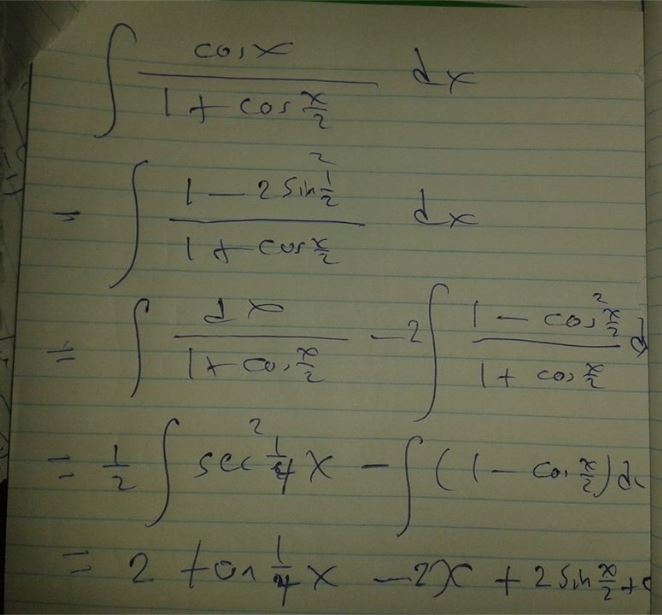 ∫ cosx / (1 + cos x/2) dx
= ∫ (1 - 2 sin² 1/2) / (1 + cos x/2) dx
= ∫ dx / (1 + cos x/2) - 2 ∫ (1 - cos² x/2) / (1 + cos x/2) d
= 1/2 ∫ sec² 1/4 x - ∫ (1 - cos x/2) dx
= 2 tan 1/4 x - 2x + 2 sin x/2 + c